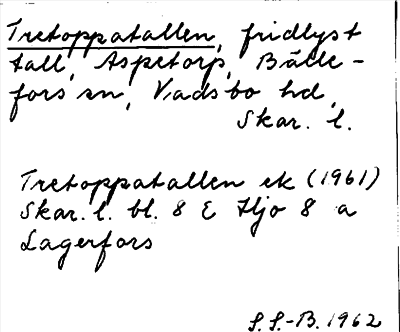 Tretoppatallen, fridlyst
tall, Aspetorp, Bälle-
fors sn, Vadsbo hd,
Skar. l.
Tretoppatallen ek (1961)
Skar. l. bl. 8 E Hjo 8 a
Lagerfors
S. S.-B. 1962